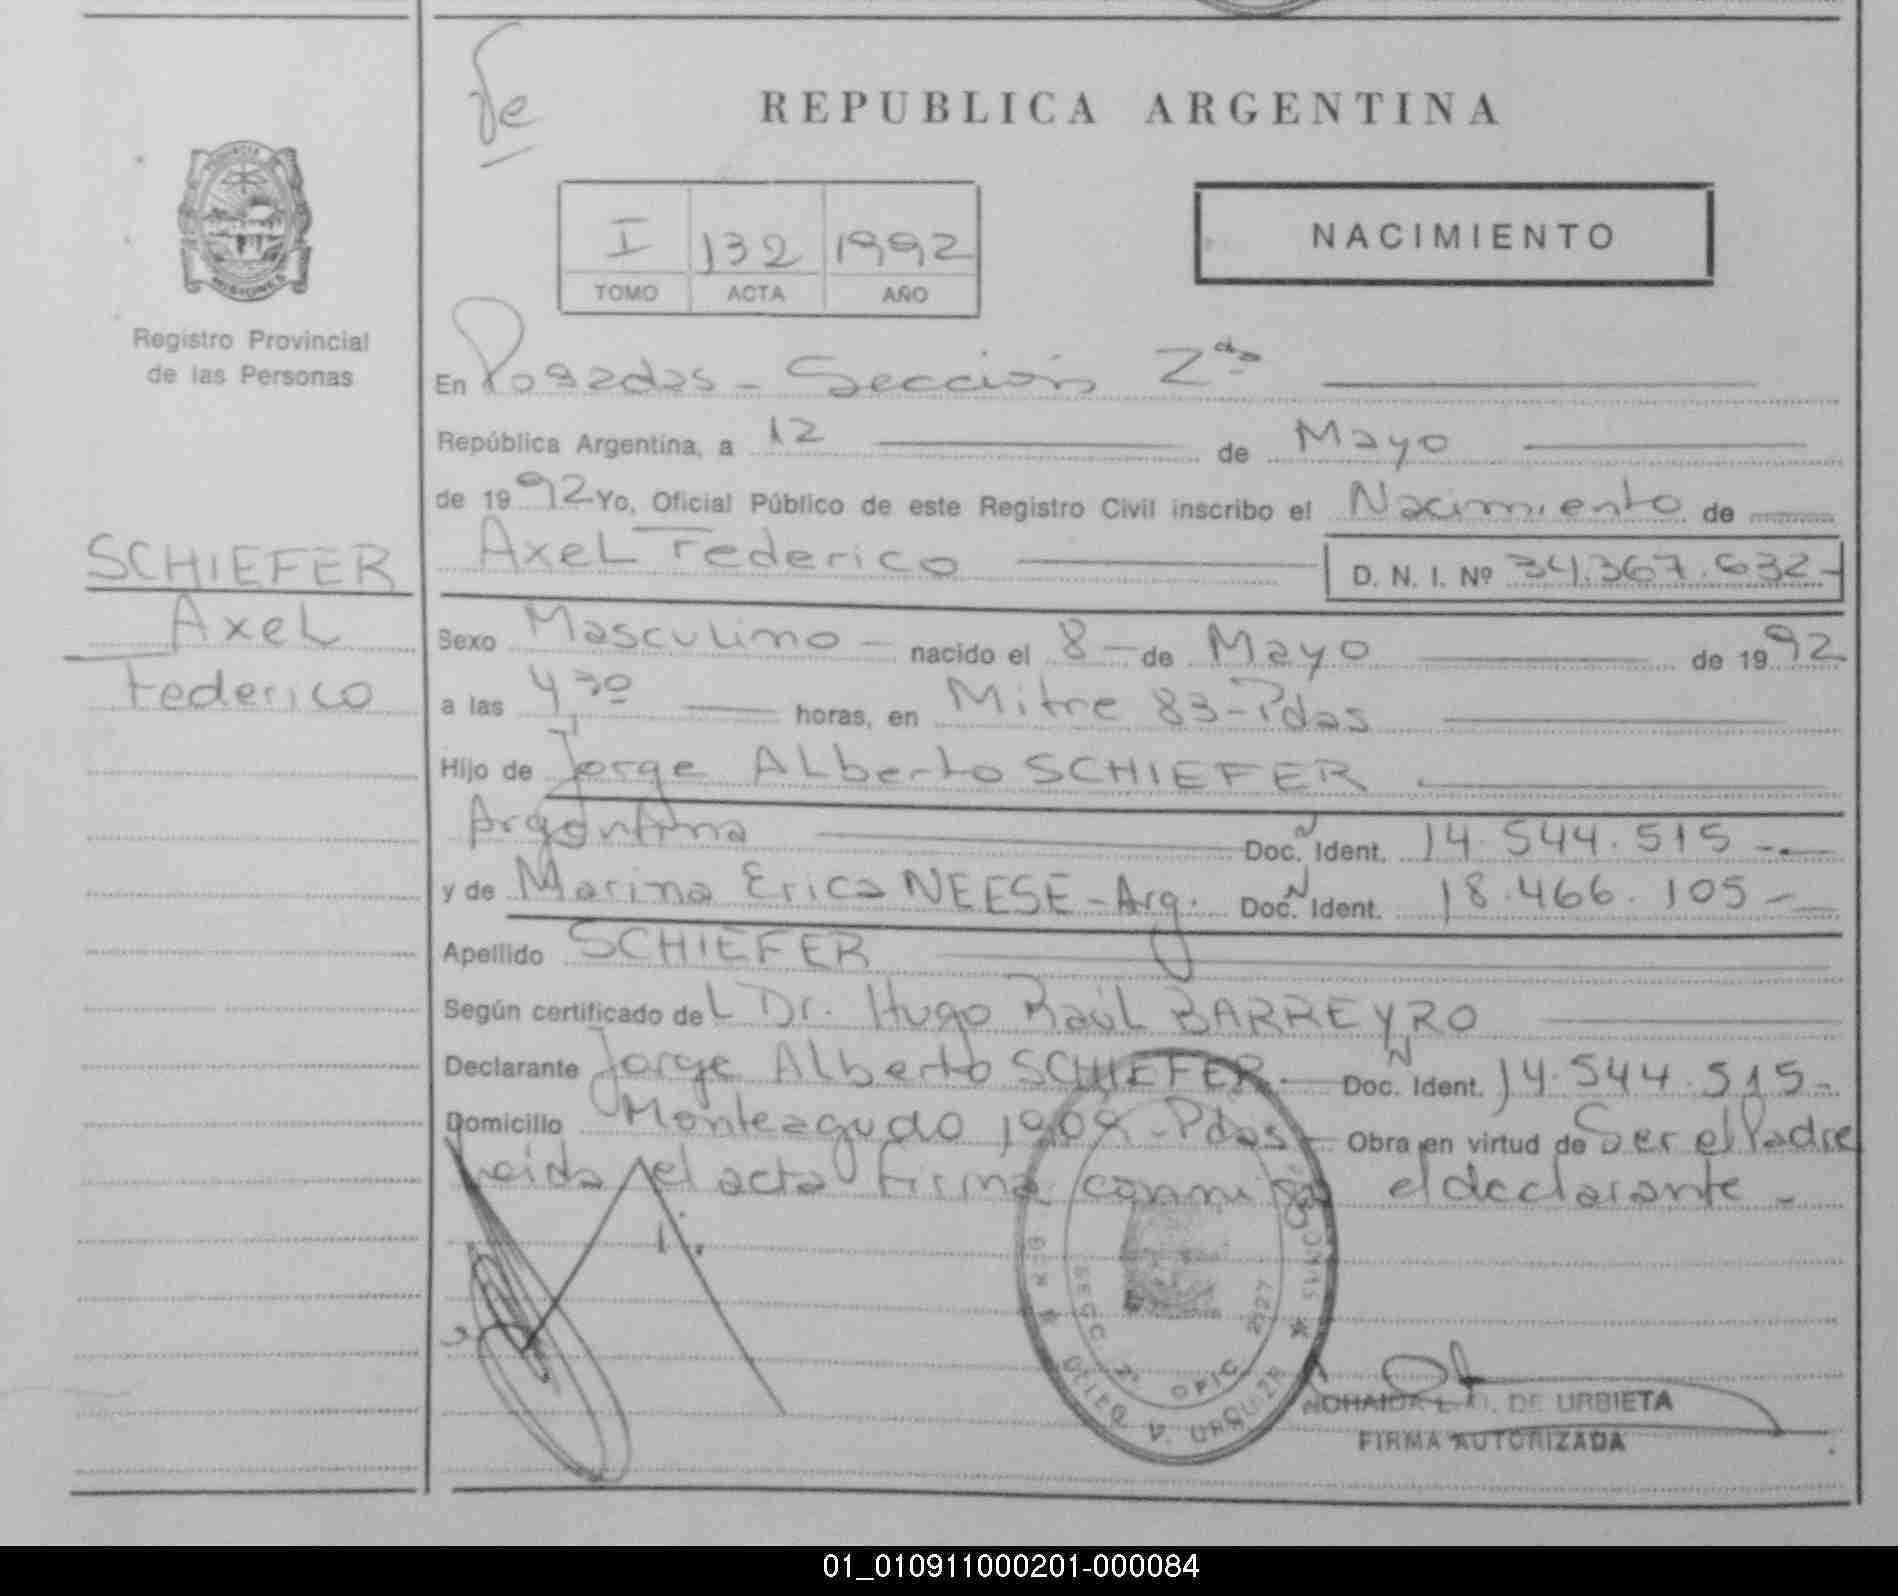 Fe
REPUBLICA ARGENTINA
I 132 1992
TOMO ACTA AÑO
NACIMIENTO
PROVINCIA DE MISIONES
Registro Provincial
de las Personas
SCHIEFER
Axel
Federico
En Posadas - Sección 2da
República Argentina, a 12 de Mayo
de 1992 Yo, Oficial Público de este Registro Civil inscribo el Nacimiento de
Axel Federico D. N. I. Nº 34.367.632-
Sexo Masculino - nacido el 8 - de Mayo de 1992
a las 4,30 horas, en Mitre 83-Pdas
Hijo de Jorge Alberto SCHIEFER
Argentina Doc. N Ident. 14.544.515 -.-
y de Marina Erica NEESE - Arg. Doc. N Ident. 18.466.105 -
Apellido SCHIEFER
Según certificado del Dr. Hugo Raúl BARREYRO
Declarante Jorge Alberto SCHIEFER. Doc. N Ident. 14.544.515-
Domicilio Monteagudo 1909 - Pdas - Obra en virtud de Ser el Padre
Leida el acta firma conmigo el declarante -
SECC. 2ª OFIC. 2527
URQUIZA
DE URBIETA
FIRMA AUTORIZADA
01_010911000201-000084